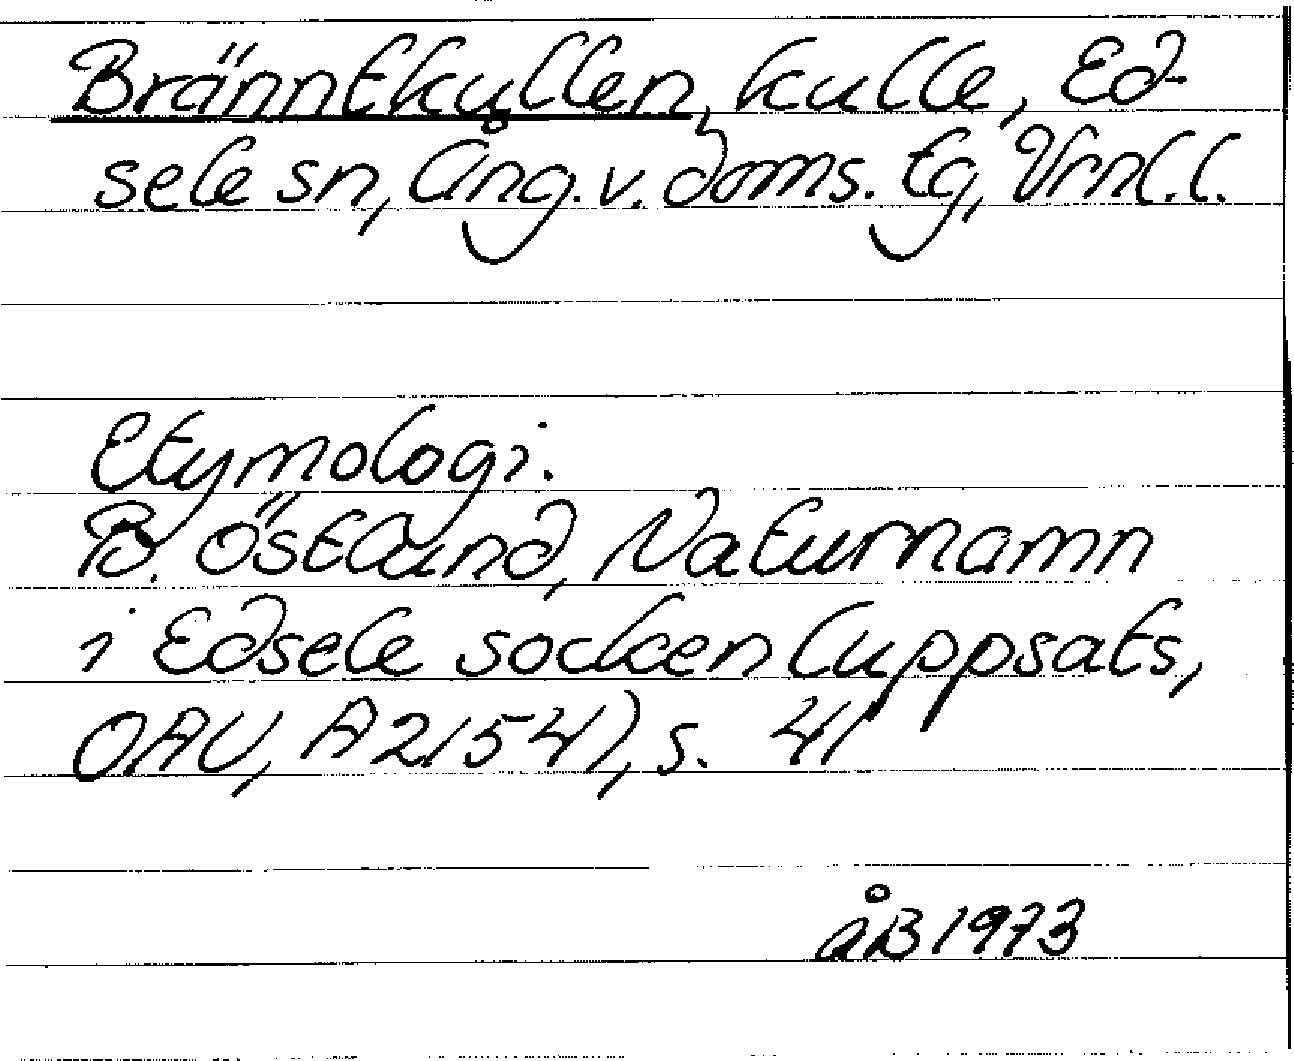 Bränntkullen, kulle, Ed-
sele sn, Ång. v. doms. tg, Vrnl. l.
Etymologi.
B. Östlund, Naturnamn
i Edsele socken (uppsats,
OAU, A 2154), s. 41
åB 1973